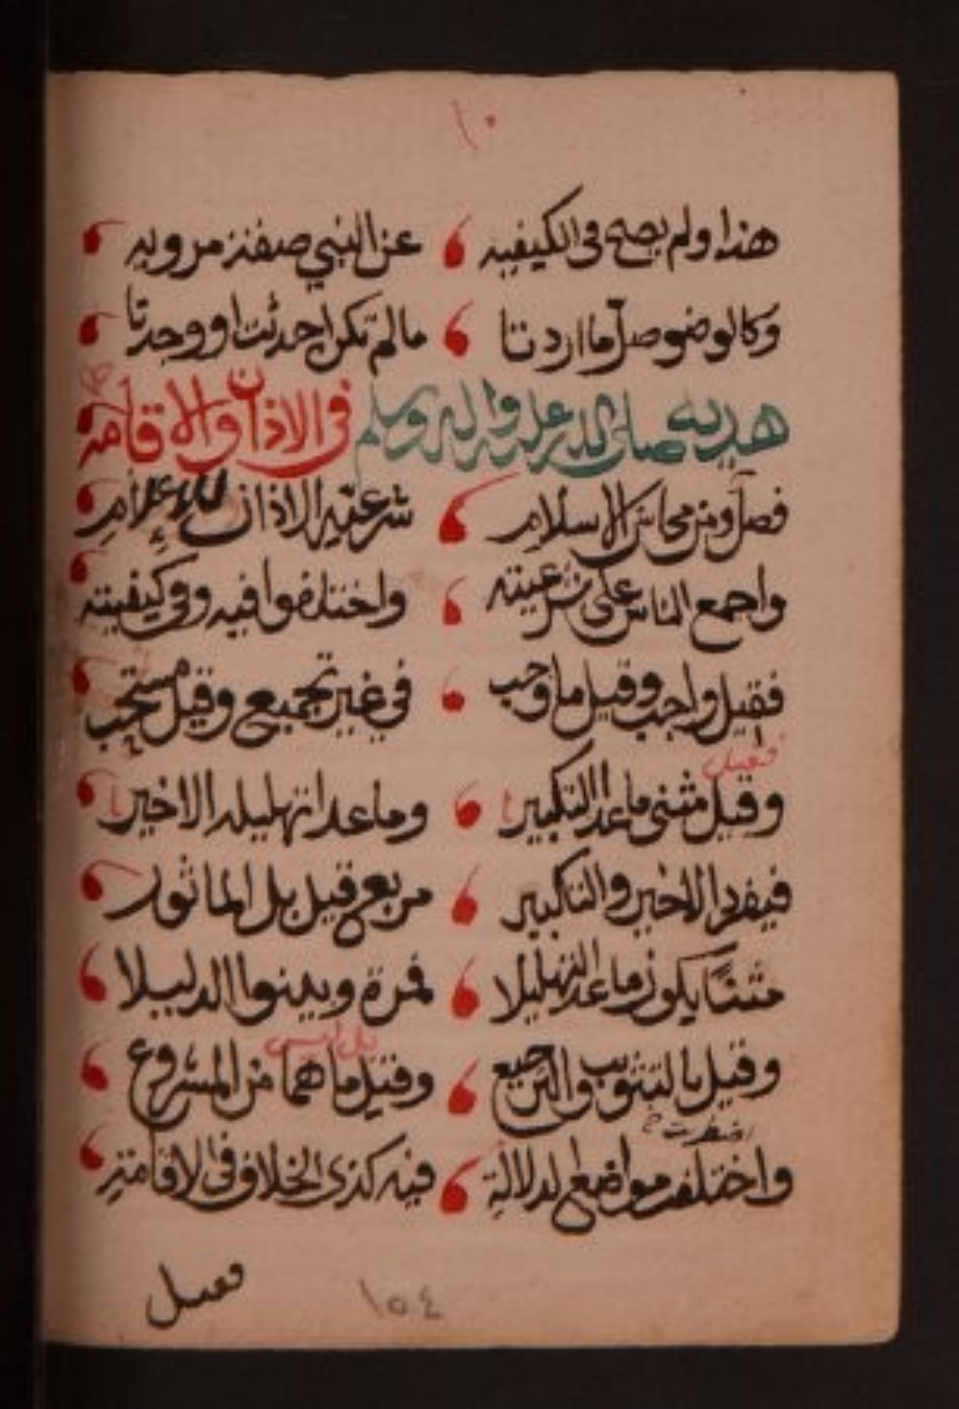 ١٠
هذا ولم يصح في الكيفيه عن النبي صفة مرويه
وكالوضوء صل ما اردتا مالم تكن احدثت او وجدتا
هديه صلى الله عليه واله وسلم في الاذان والاقامة
فصل ومن محاسن الاسلام شرعية الاذان للاعلام
واجمع الناس على شرعيته واختلفوا فيه وفي كيفيته
فقيل واجب وقيل ما وجب في غير تجميع وقيل مستحب
فقيل
وقيل مثنى ما عدا التكبيرا وما عدا تهليله الاخيرا
فيفرد الاخير والتكبير مربع قيل بل الماثور
مثنا يكون ما عدا التهليلا فمرة وبينوا الدليلا
بل ليس
وقيل بالتثويب والترجيع وقيل ما هما من المشروع
اضطربت خ
واختلفت مواضع الدلالة فيه كذى الخلاف في الاقامة
فصل
١٥٤